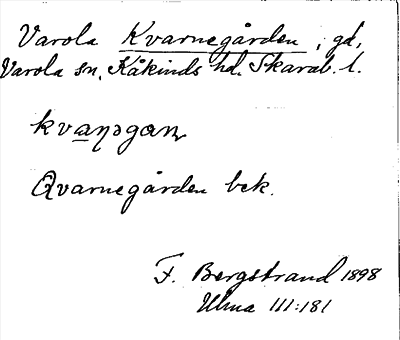 Varola Kvarnegården, gd,
Varola sn, Kåkinds hd. Skarab. l.
kvaŋəgαɳ
Qvarnegården bek.
F. Bergstrand 1898
Ulma 111:181